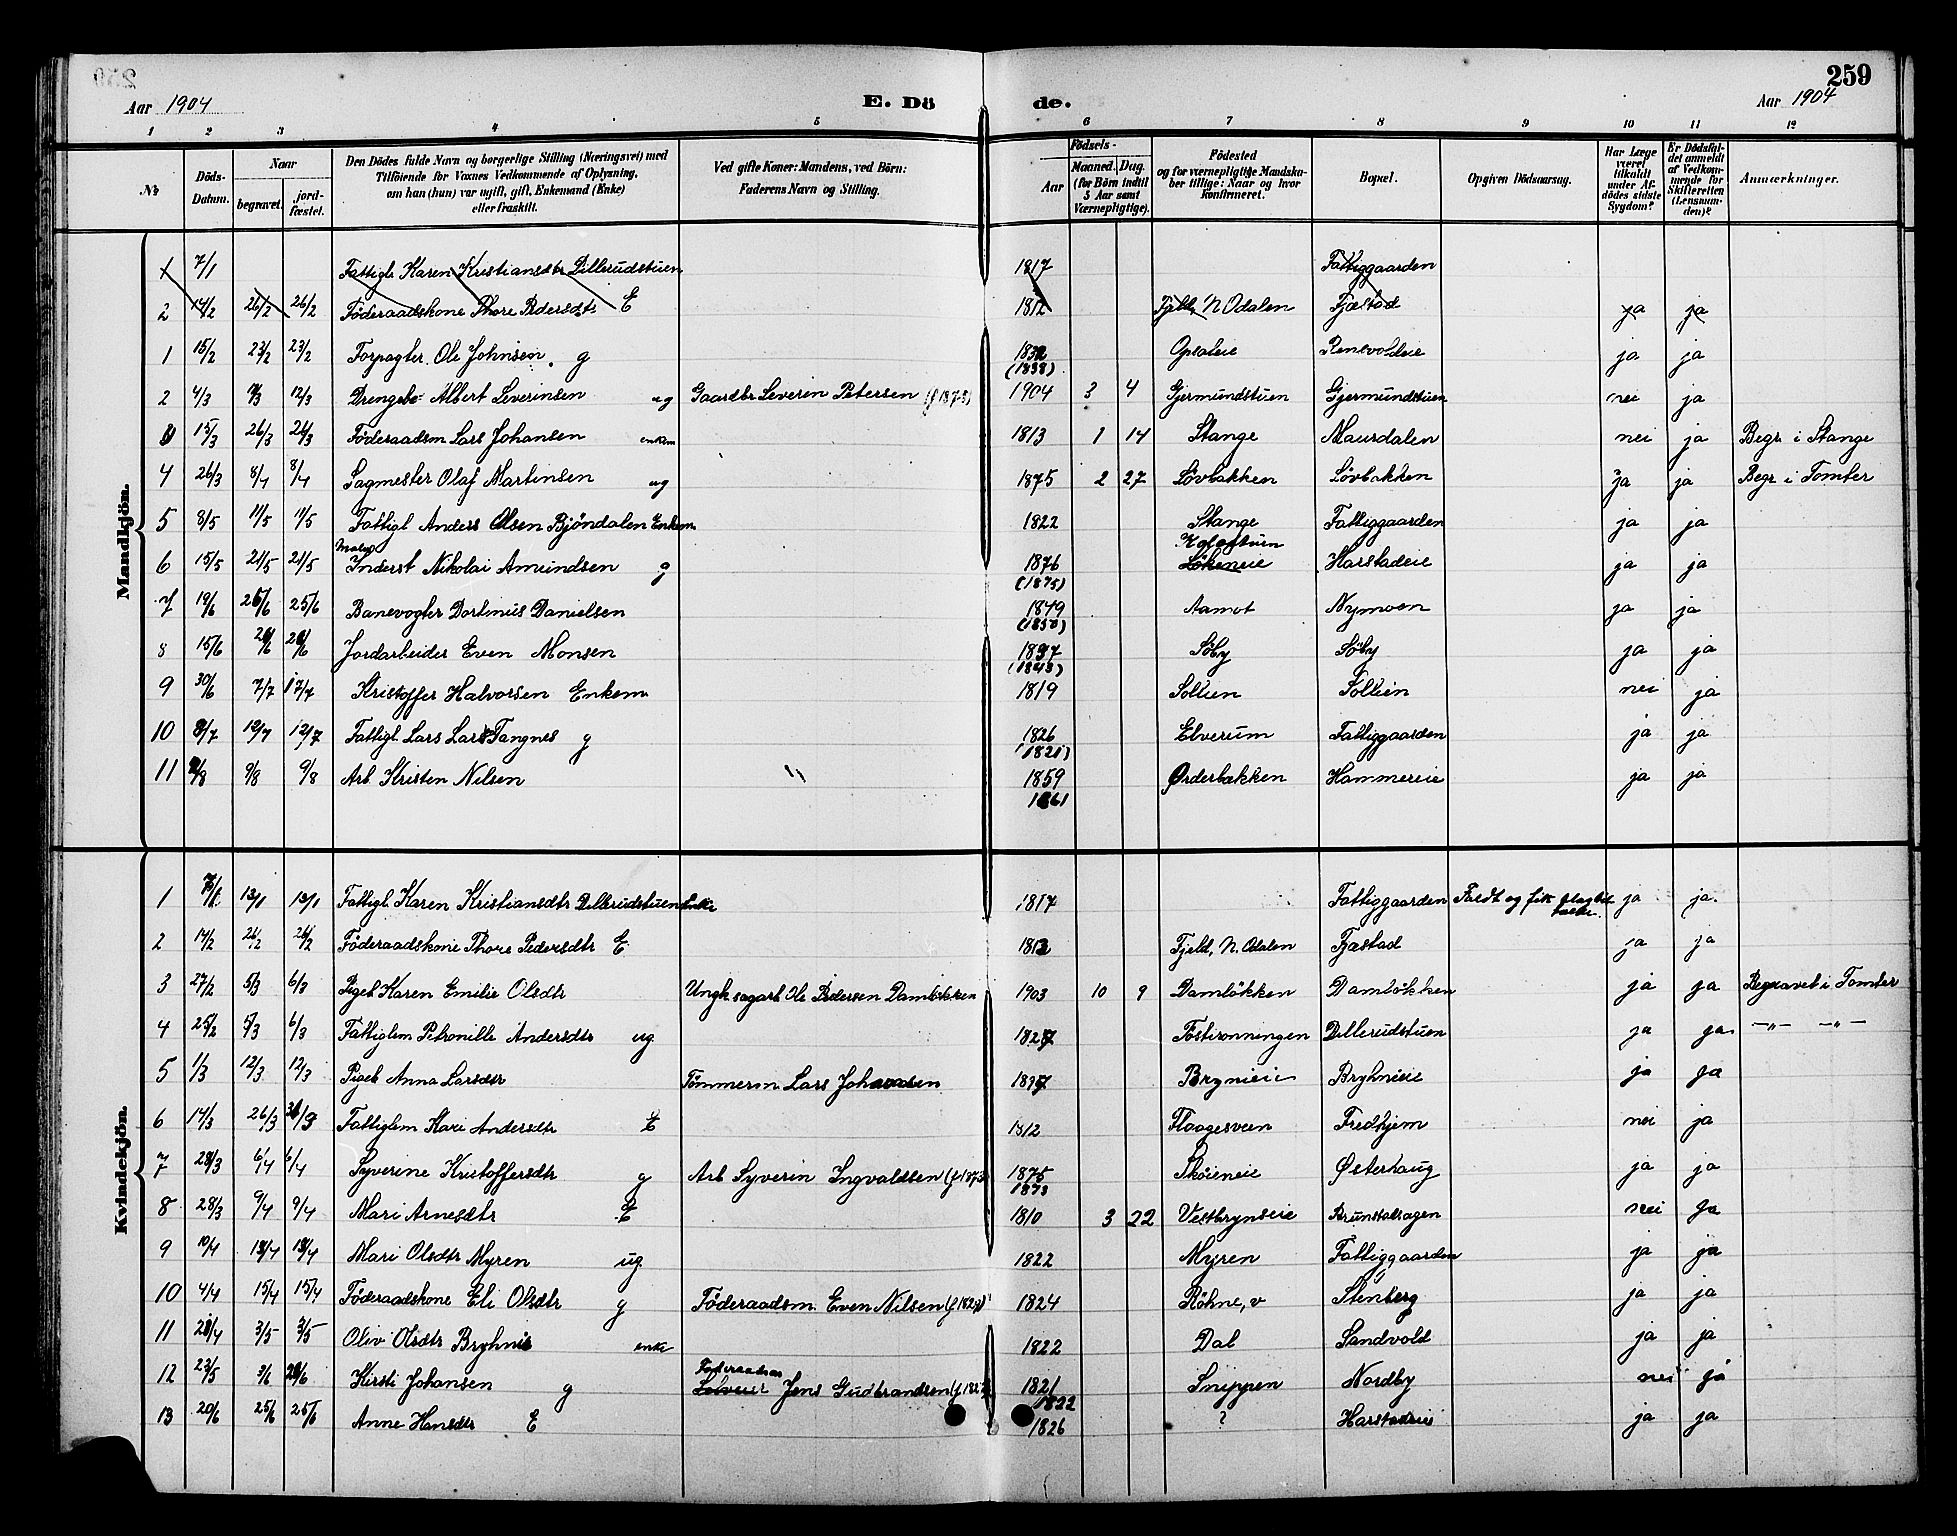 259
Aar 1904 E. Dö de. Aar 1904
1 2 3 4 5 6 7 8 9 10 11 12
№ Döds-Datum. Naar begravet. jord-fæstet. Den Dödes fulde Navn og borgerlige Stilling (Næringsvei) med Tilföiende for Voxnes Vedkommende af Oplysning, om han (hun) var ugift, gift, Enkemand (Enke) eller fraskilt. Ved gifte Koner: Mandens, ved Börn: Faderens Navn og Stilling. Födsels- Aar Maaned. Dag. (for Börn indtil 5 Aar samt Værnepligtige). Födested og for værnepligtige Mandskaber tillige: Naar og hvor Konfirmeret. Bopæl. Opgiven Dödsaarsag. Har Læge været tilkaldt under Afdödes sidste Sygdom? Er Dödsfaldet anmeldt af Vedkommende for Skifteretten (Lensmanden)? Anmærkninger.
Mandkjön.
1 7/1 Fattigl. Karen Kristiansdtr Dillerudstuen 1817 Fattiggaarden
2 14/2 26/2 26/2 Föderaadskone Thore Pedersdtr E 1812 Fjeld, N. Odalen Fjæstad ja ja
1 15/2 23/2 23/2 Forpagter Ole Johnsen g 1832 (1838) Opsaleie Renevoldeie ja ja
2 4/3 12/3 12/3 Drengeb. Albert Severinsen ug Gaardbr Severin Petersen (f 1878) 1904 3 4 Gjermundstuen Gjermundstuen nei ja
15/3 26/3 26/3 Föderaadsm Lars Johansen enkem 1813 1 14 Stange Maurdalen nei ja Begr. i Stange
4 26/3 8/4 8/4 Sagmester Olaf Martinsen ug 1875 2 27 Lövbakken Lövbakken ja ja Begr. i Tomter
5 8/5 11/5 11/5 Fattigl Anders Olsen Bjöndalen Enkem. 1822 Stange Fattiggaarden ja ja
6 15/5 21/5 21/5 Maler Inderst Nikolai Amundsen g 1876 (1875) Lökeneie Harstadeie ja ja
7 19/6 25/6 25/6 Banevogter Dortinus Danielsen 1849 (1850) Aamot Nymoen ja ja
8 15/6 Jordarbeider Even Monsen (1843) Söby Söby ja ja
9 30/6 7/7 17/7 Kristoffer Halvorsen Enkem 1819 Sollien Sollien nei ja
10 8/7 12/7 12/7 Fattigl. Lars Lars. Tangnes g 1826 (1821) Elverum Fattiggaarden ja ja
11 9/8 9/8 Arb Kristen Nilsen 1859 1861 Örderbakken Hammereie ja ja
Kvindekjön.
1 7/1 13/1 13/1 Fattigl. Karen Kristiansdtr Dillerudstuen Enke 1817 Fattiggaarden Faldt og fik ja ja.
2 14/2 26/2 26/2 Föderaadskone Thore Pedersdtr E 1812 Fjeld, N. Odalen Fjæstad ja ja
3 27/2 5/3 6/3 Pigeb Karen Emilie Olsdtr Ungk sagarb Ole Pedersen Damlökken 1903 10 9 Damlökken Damlökken ja ja Begravet i Tomter
4 25/2 5/3 6/3 Fattiglem Petronille Andersdtr ug 1827 Fostironningen Dillerudstuen ja ja. —〃— —〃—
5 1/3 12/3 12/3 Pigeb Anna Larsdtr Tömmerm Lars Johansen 1897 Brynieie Bryhnieie ja ja
6 14/3 26/3 26/3 Fattiglem Kari Andersdtr E 1812 Flaagesveen Fredhjem nei ja
7 28/3 6/4 6/4 Syverine Kristoffersdtr g Arb Syverin Ingvaldsen (f 1873 1875 1873 Sköieneie Österhaug ja ja
8 28/3 9/4 9/4 Mari Arnesdtr E 1810 3 22 Vestbrynseie Brunstalsagen nei ja
9 10/4 18/4 18/4 Mari Olsdtr Myren ug 1822 Myren Fattiggaarden ja ja
10 4/4 15/4 15/4 Föderaadskone Eli Olsdtr g Föderaadsm. Even Nilsen (f 1828) 1824 Röhne, v Stenberg ja ja
11 28/4 3/5 3/5 Oliv Olsdtr Bryhni enke 1822 Dal Sandvold ja ja
12 23/5 Kirsti Johansen g Föderaadsm Jens Gudbrandsen (f. 1827) 1821 1822 Snippen Nordby nei ja
13 20/6 25/6 25/6 Anne Hansdtr E 1826 ? Harstadeie ja ja